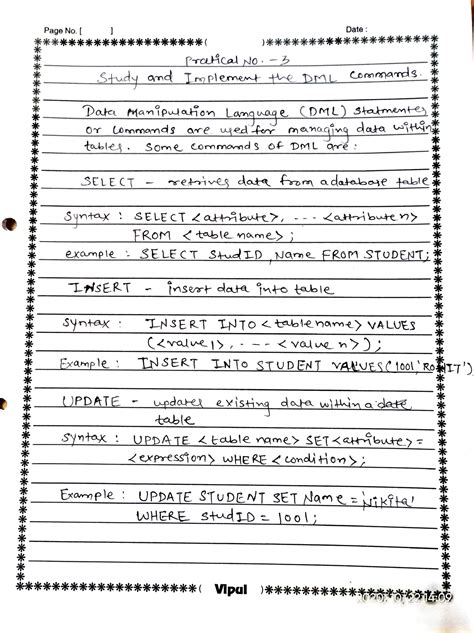 Page No. [ ]
Date :
Pratical No. - 3
Study and Implement the DML Commands.
Data Manipulation Language (DML) Statmentes
or Commands are used for managing data within
tables. Some commands of DML are :
SELECT - retrives data from a database table
Syntax : SELECT <attribute>, --- <attribute n>
FROM <table name>;
example : SELECT StudID, Name FROM STUDENT;
INSERT - insert data into table
Syntax : INSERT INTO <table name> VALUES
(<value 1>, --- <value n>);
Example : INSERT INTO STUDENT VALUES(1001,'ROHIT')
UPDATE - updates existing data within a date
table
Syntax : UPDATE <table name> SET <attribute> =
<expression> WHERE <condition>;
Example : UPDATE STUDENT SET Name = 'Nikita'
WHERE StudID = 1001;
Vipul